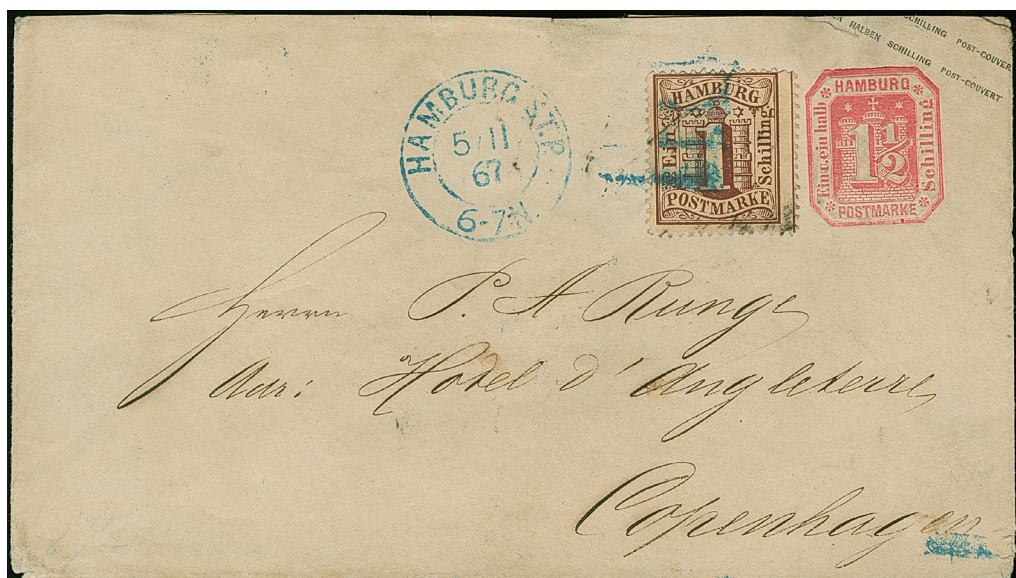 SCHILLING POST-COUVER
EN HALBEN SCHILLING POST-COUVERT
HAMBURG ST.P.
5/11
67
6-7N.
HAMBURG
Ein
1
Schilling
POSTMARKE
HAMBURG
Ein u. ein halb
1 1/2
Schilling
POSTMARKE
Herrn P. A Runge
Adr: Hotel d'Angleterre
Copenhagen